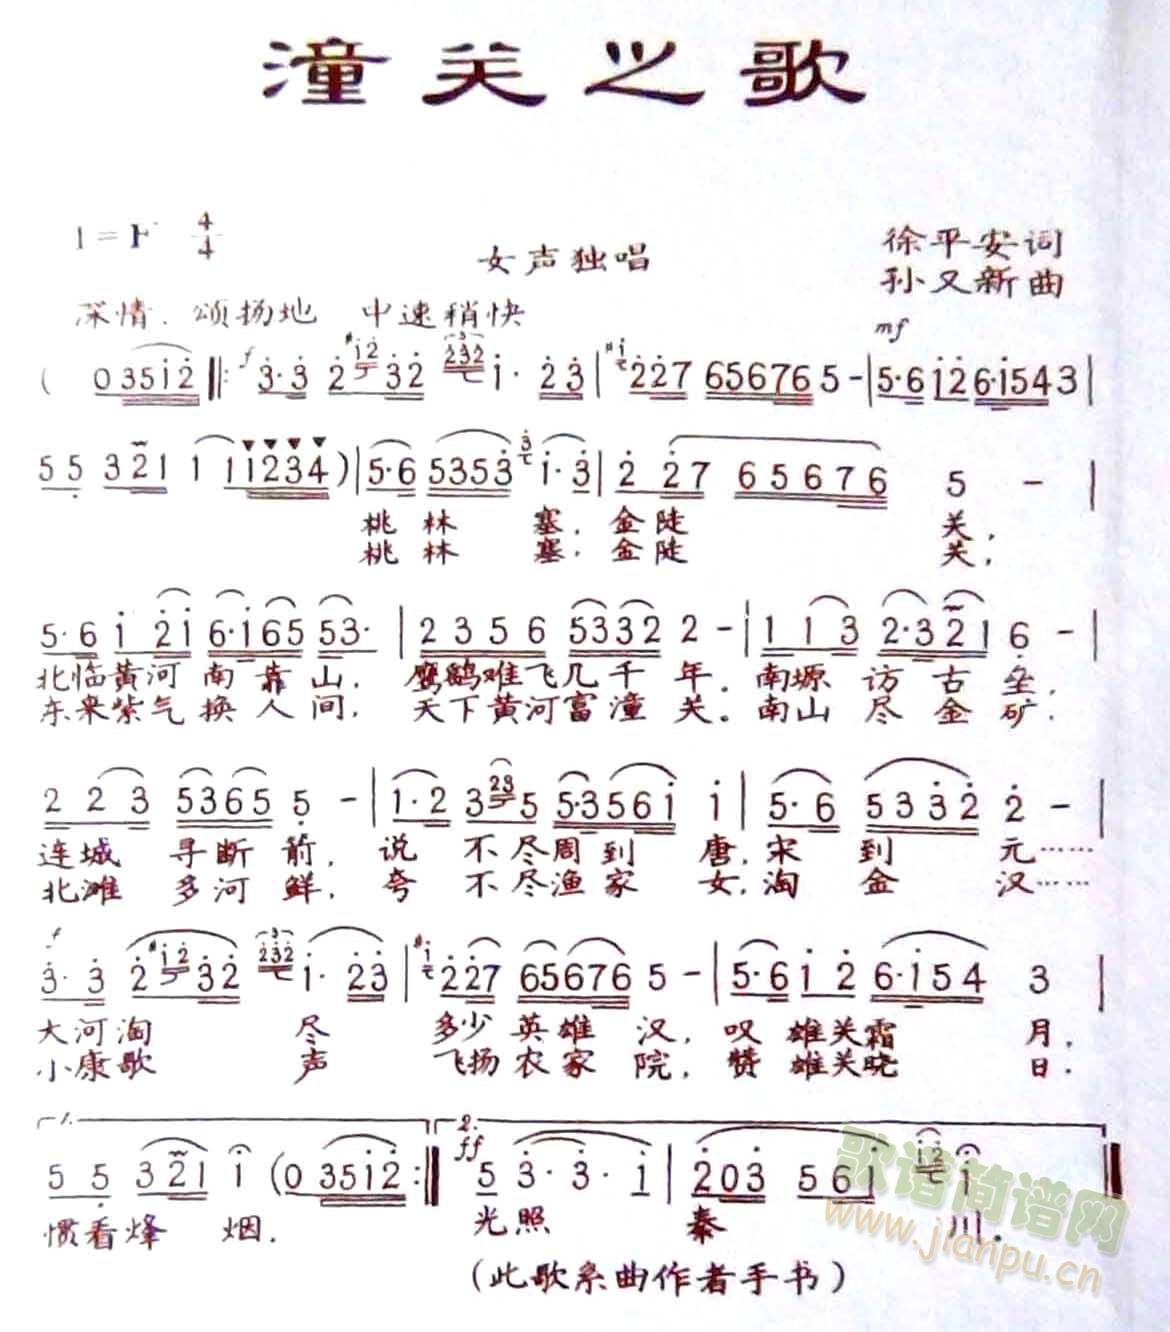 潼关之歌
1=F 4/4
女声独唱
徐平安词
孙又新曲
深情、颂扬地 中速稍快
mf
( 0 3 5 i 2 ‖: f 3· 3 2 #i 2 3 2 2 3 2 i· 2 3 | #i 2 2 7 6 5 6 7 6 5 - | 5· 6 i 2 6· i 5 4 3 |
5 5 3 2 1 1 1 1 2 3 4 ) | 5· 6 5 3 5 3 3 i· 3 | 2 2 7 6 5 6 7 6 5 - |
桃林 塞,金陡 关,
桃林 塞,金陡 关,
5· 6 i 2 i 6· i 6 5 5 3· | 2 3 5 6 5 3 3 2 2 - | 1 1 3 2· 3 2 1 6 - |
北临黄河南靠山,鹰鹞难飞几千年。南塬访古垒,
东来紫气换人间,天下黄河富潼关。南山尽金矿,
2 2 3 5 3 6 5 5 - | 1· 2 3 2 3 5 5· 3 5 6 i i | 5· 6 5 3 3 2 2 - |
连城寻断箭,说不尽周到唐,宋到元……
北滩多河鲜,夸不尽渔家女,淘金汉……
f
3· 3 2 #i 2 3 2 2 3 2 i· 2 3 | #i 2 2 7 6 5 6 7 6 5 - | 5· 6 i 2 6· i 5 4 3 |
大河淘尽多少英雄汉,叹雄关霜月,
小康歌声飞扬农家院,赞雄关晓日.
1. 2.
ff
5 5 3 2 1 i ( 0 3 5 i 2 :‖ 5 3· 3· i | 2 0 3 5 6 i i 2 i ‖
惯看烽烟. 光照秦川.
(此歌系曲作者手书)
歌谱简谱网
www.jianpu.cn